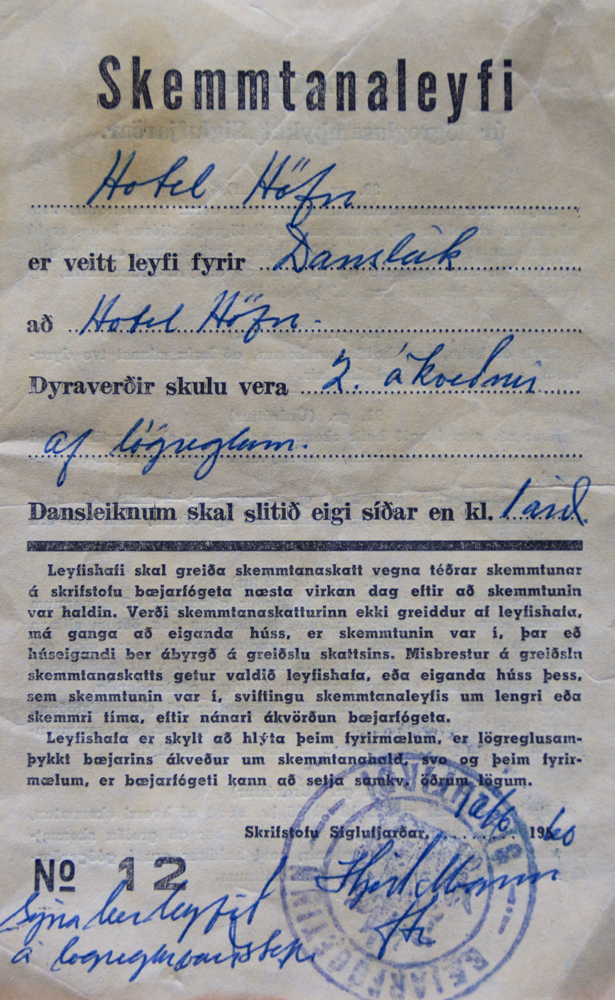 Skemmtanaleyfi
Hotel Höfn
er veitt leyfi fyrir Dansleik
að Hotel Höfn.
Dyraverðir skulu vera 2. ákveðnir
af lögreglunni.
Dansleiknum skal slitið eigi síðar en kl. 1 árd.
Leyfishafi skal greiða skemmtanaskatt vegna téðrar skemmtunar
á skrifstofu bæjarfógeta næsta virkan dag eftir að skemmtunin
var haldin. Verði skemmtanaskatturinn ekki greiddur af leyfishafa,
má ganga að eiganda húss, er skemmtunin var í, þar eð
húseigandi ber ábyrgð á greiðslu skattsins. Misbrestur á greiðslu
skemmtanaskatts getur valdið leyfishafa, eða eiganda húss þess,
sem skemmtunin var í, sviftingu skemmtanaleyfis um lengri eða
skemmri tíma, eftir nánari ákvörðun bæjarfógeta.
Leyfishafa er skylt að hlýta þeim fyrirmælum, er lögreglusam-
þykkt bæjarins ákveður um skemmtanahald, svo og þeim fyrir-
mælum, er bæjarfógeti kann að setja samkv. öðrum lögum.
Skrifstofu Siglufjarðar, 1960
No 12
Sýna ber leyfið
á lögregluvarðstofu
BÆJARFÓGETINN